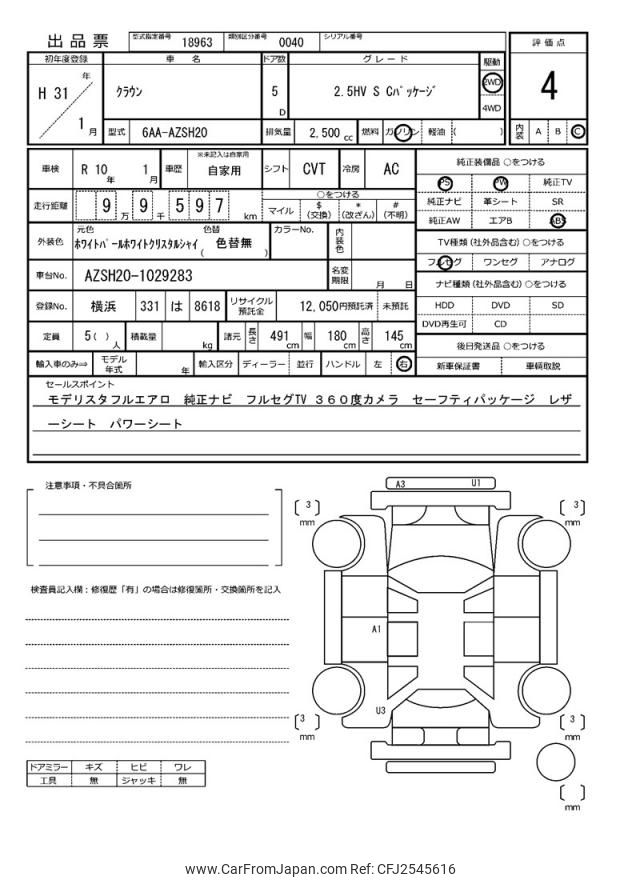 出品票 型式指定番号 18963 類別区分番号 0040 シリアル番号
初年度登録 車名 ドア数 グレード 駆動 評価点
H 31 年 1 月 クラウン 5 D 2.5HV S Cﾊﾟｯｹｰｼﾞ 2WD 4WD 4
型式 6AA-AZSH20 排気量 2,500 cc 燃料 ガソリン 軽油 ( ) 内装 A B C
車検 R 10 年 1 月 車歴 ※未記入は自家用 自家用 シフト CVT 冷房 AC 純正装備品 ○をつける
PS PW 純正TV
走行距離 9 万 9 千 5 9 7 km ○をつける
マイル $ (交換) * (改ざん) # (不明)
純正ナビ 革シート SR
純正AW エアB ABS
外装色 元色 ﾎﾜｲﾄﾊﾟｰﾙﾎﾜｲﾄｸﾘｽﾀﾙｼｬｲ 色替 ( 色替無 ) カラーNo. 内装色
TV種類 (社外品含む) ○をつける
フルセグ ワンセグ アナログ
車台No. AZSH20-1029283 名変期限 月 日
ナビ種類 (社外品含む) ○をつける
登録No. 横浜 331 は 8618 リサイクル預託金 12,050円預託済 未預託
HDD DVD SD
DVD再生可 CD
定員 5( ) 人 積載量 kg 諸元 長さ 491 cm 幅 180 cm 高さ 145 cm
後日発送品 ○をつける
輸入車のみ⇨ モデル年式 年 輸入区分 ディーラー 並行 ハンドル 左 右 新車保証書 車輌取説
セールスポイント
モデリスタフルエアロ 純正ナビ フルセグTV 360度カメラ セーフティパッケージ レザ
ーシート パワーシート
注意事項・不具合箇所
A3 U1
[ 3 ] mm [ 3 ] mm
検査員記入欄：修復歴「有」の場合は修復箇所・交換箇所を記入
A1
U3
[ 3 ] mm [ 3 ] mm
ドアミラー キズ ヒビ ワレ
工具 無 ジャッキ 無
[ ] mm
www.CarFromJapan.com Ref: CFJ2545616